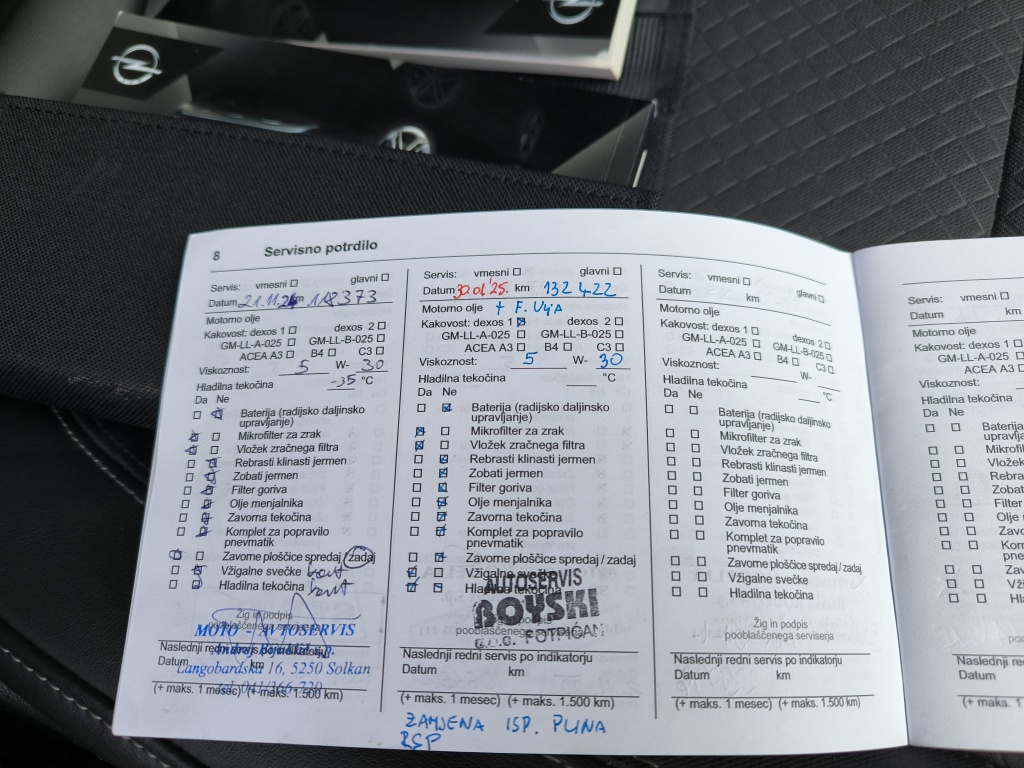 8 Servisno potrdilo
Servis: vmesni glavni
Datum 21.11.24 km 118373
Motorno olje
Kakovost: dexos 1 dexos 2
GM-LL-A-025 GM-LL-B-025
ACEA A3 B4 C3
Viskoznost: 5 W- 30
Hladilna tekočina -35 °C
Da Ne
Baterija (radijsko daljinsko
upravljanje)
Mikrofilter za zrak
Vložek zračnega filtra
Rebrasti klinasti jermen
Zobati jermen
Filter goriva
Olje menjalnika
Zavorna tekočina
Komplet za popravilo
pnevmatik
Zavorne ploščice spredaj / zadaj
Vžigalne svečke
Hladilna tekočina
Žig in podpis
MOTO - AVTOSERVIS
Naslednji redni servis po indikatorju
Datum km
Langobardska 16, 5250 Solkan
(+ maks. 1 mesec) (+ maks. 1.500 km)
Servis: vmesni glavni
Datum 30.01.'25. km 132 422
Motorno olje + F. ULJA
Kakovost: dexos 1 dexos 2
GM-LL-A-025 GM-LL-B-025
ACEA A3 B4 C3
Viskoznost: 5 W- 30
Hladilna tekočina °C
Da Ne
Baterija (radijsko daljinsko
upravljanje)
Mikrofilter za zrak
Vložek zračnega filtra
Rebrasti klinasti jermen
Zobati jermen
Filter goriva
Olje menjalnika
Zavorna tekočina
Komplet za popravilo
pnevmatik
Zavorne ploščice spredaj / zadaj
Vžigalne svečke
AUTOSERVIS
Hladilna tekočina
BOYSKI
POTPIĆAN
Naslednji redni servis po indikatorju
Datum km
(+ maks. 1 mesec) (+ maks. 1.500 km)
ZAMJENA ISP. PLINA
Servis: vmesni glavni
Datum km
Motorno olje
Kakovost: dexos 1 dexos 2
GM-LL-A-025 GM-LL-B-025
ACEA A3 B4 C3
Viskoznost: W-
Hladilna tekočina °C
Da Ne
Baterija (radijsko daljinsko
upravljanje)
Mikrofilter za zrak
Vložek zračnega filtra
Rebrasti klinasti jermen
Zobati jermen
Filter goriva
Olje menjalnika
Zavorna tekočina
Komplet za popravilo
pnevmatik
Zavorne ploščice spredaj / zadaj
Vžigalne svečke
Hladilna tekočina
Žig in podpis
pooblaščenega serviserja
Naslednji redni servis po indikatorju
Datum km
(+ maks. 1 mesec) (+ maks. 1.500 km)
Servis: vmesni
Datum km
Motorno olje
Kakovost: dexos 1
GM-LL-A-025
ACEA A3
Viskoznost:
Hladilna tekočina
Da Ne
Naslednji redni
Datum
(+ maks. 1 mesec)